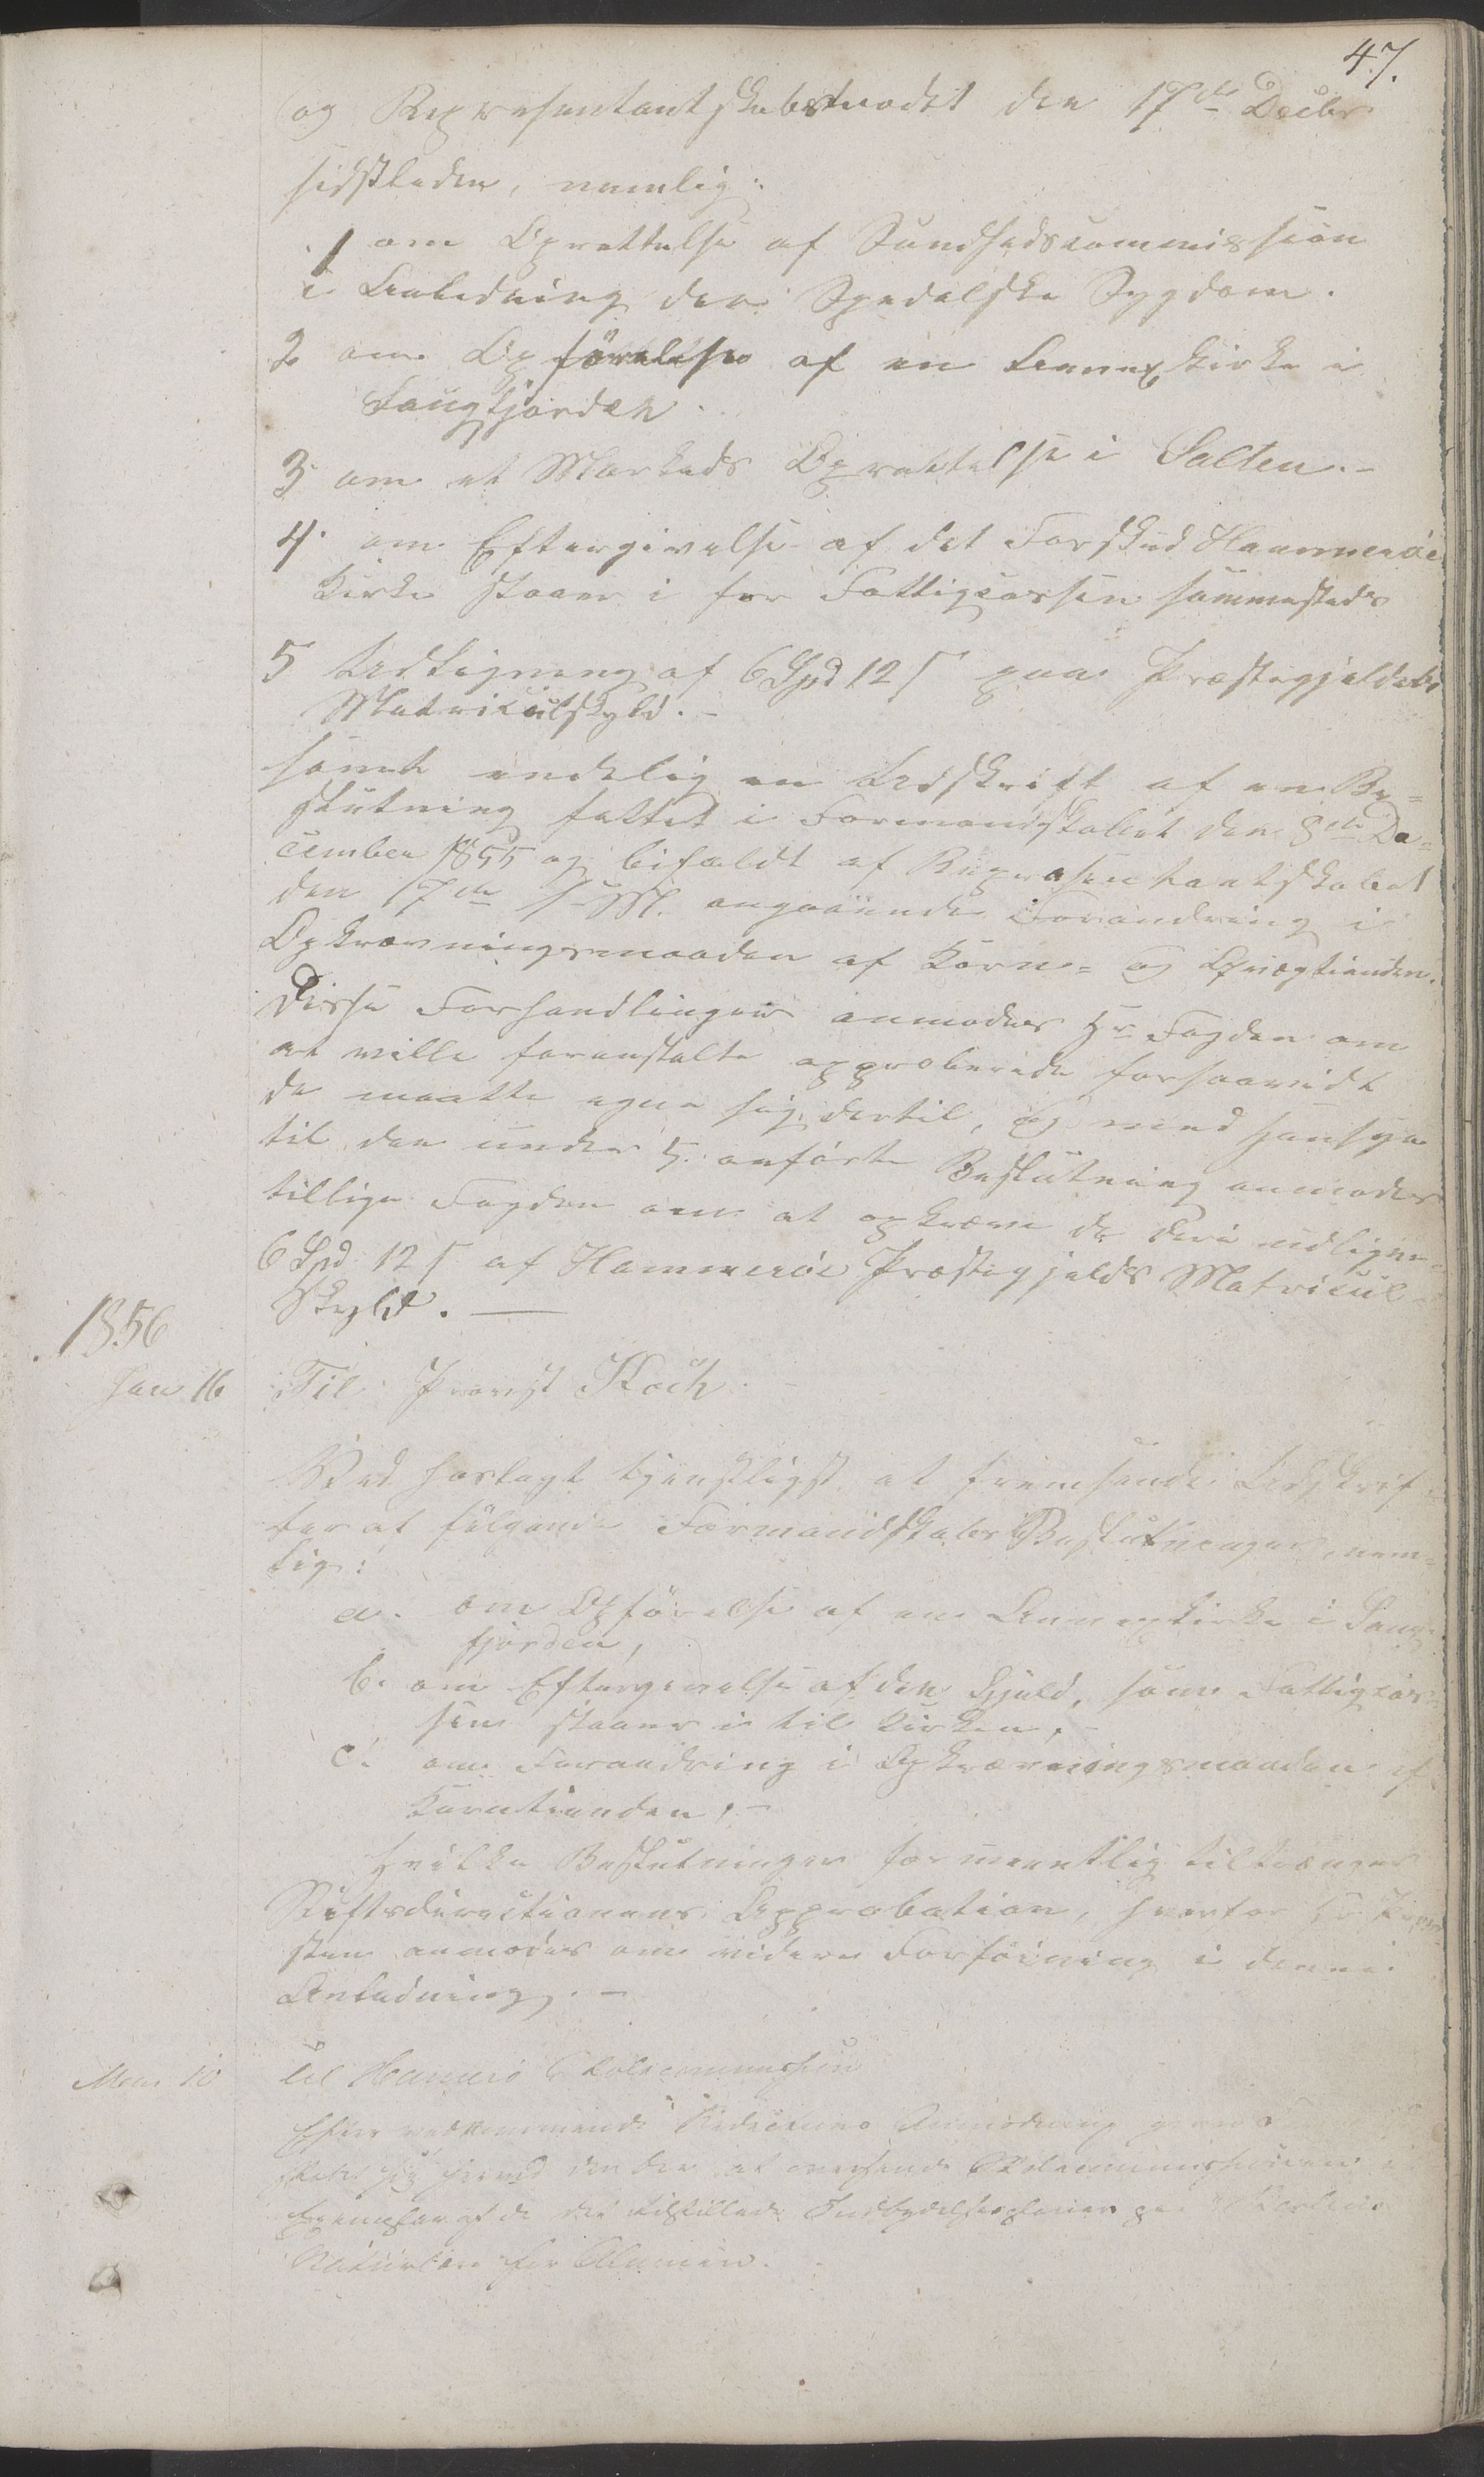 47.
og Repræsentantskabsmødet den 17de Decbr
sidstleden, nemlig:
1 om Oprettelse af Sundhedscommission
i Anledning den Spedalske Sygdom.
2 om Opförelse af en Annexkirke i
Saugfjorden.
3 om et Markeds Oprettelse i Salten.-
4. om Eftergivelse af det Forskud Hammerøe
Kirke staaer i for Fattigcassen sammesteds
5 Udligning af 6 Spd 12 s paa Præstegjeldets
Matriculskyld.-
samt endelig en Udskrift af en Be=
slutning fattet i Formandskabet den 8de De=
cember 1855 og bifaldt af Repræsentantskabet
den 17de s. M. angaaende Forandring i
Opkrævningsmaaden af Korn= og Qvægtienden.
Disse Forhandlinger anmodes Hr Fogden om
at ville foranstalte approberede forsaavidt
de maatte egne sig dertil, og med Hensyn
til den under 5. anførte Beslutning anmodes
tillige Fogden om at opkræve de deri udlignede
6 Spd 12 s af Hammerøe Præstegjelds Matricul
Skyld. —
1856
Jan 16 Til Provst Koch.
Ved hoslagt tjenstligst at fremsende Udskrif=
ter af følgende Formandskabs Beslutninger, nem=
lig:
a. om Opförelse af en Annexkirke i Saug
fjorden,
b. om Eftergivelse af den Gjeld, som Fattigcas=
sen staaer i til Kirken,-
c. om Forandring i Opkrævningsmaaden af
Korntienden,-
Hvilke Beslutninger formeentlig tiltrænger
Stiftsdirectionens Approbation, hvorfor Hr Prov=
sten anmodes om videre Forföining i denne
Anledning.-
10 Til Hamerö Skolecommission
Efter vedkommende Anmodning
herved den at oversende Skolecommissionen
Exemplar af de tilstillede Indbydelsesplaner paa
for Almuen.